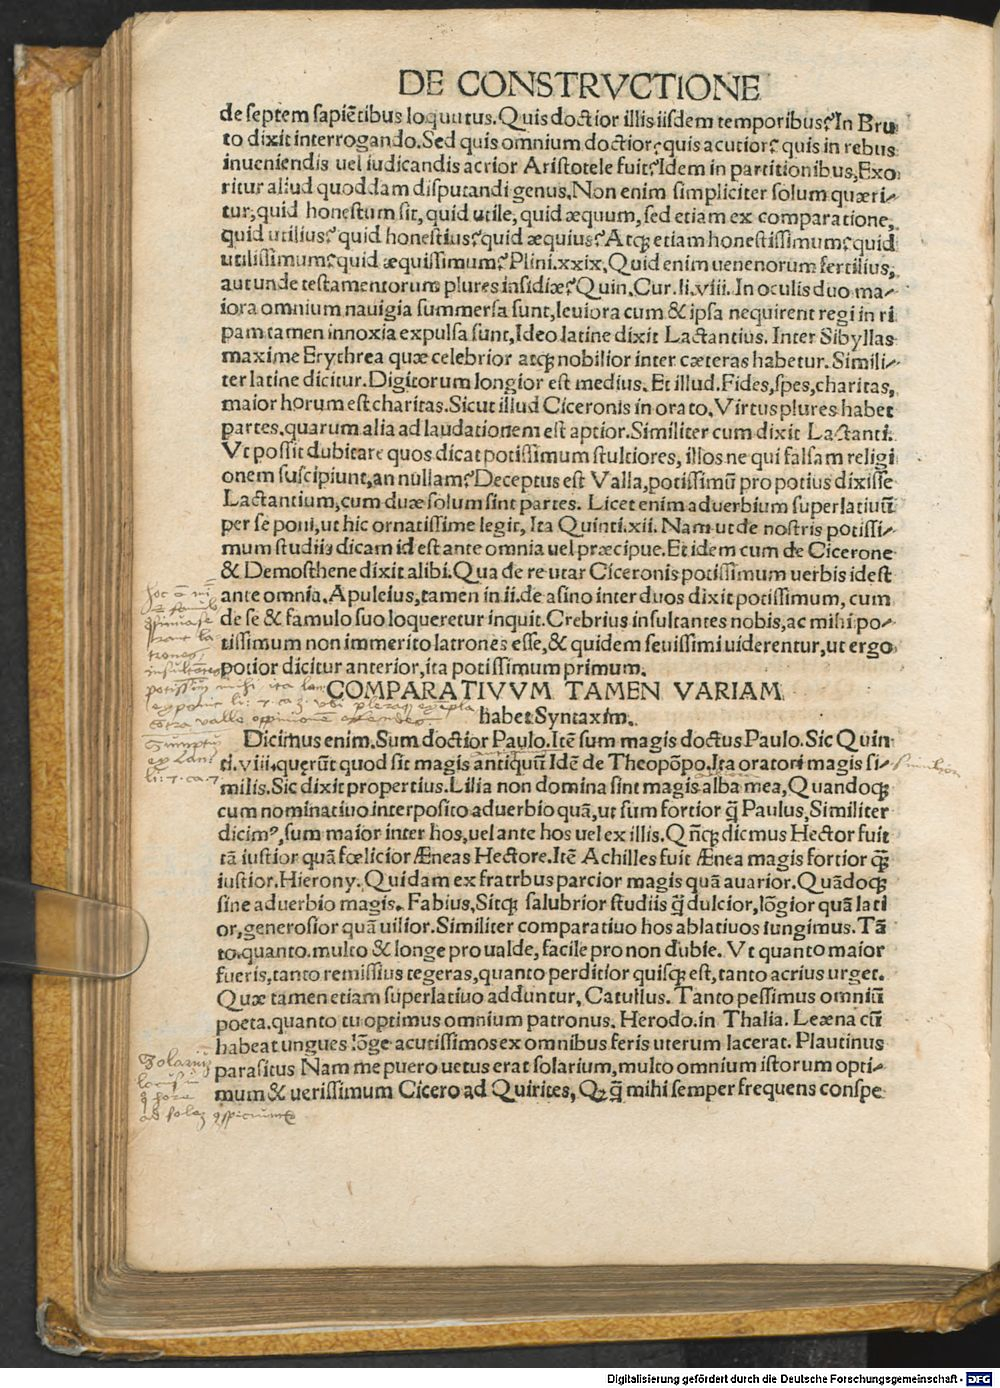 DE CONSTRVCTIONE
de ſeptem ſapiētibus loquutus. Quis doctior illis iiſdem temporibus? In Bru
to dixit interrogando. Sed quis omnium doctior? quis acutior? quis in rebus
inueniendis uel iudicandis acrior Ariſtotele fuit? Idem in partitionibus, Exo
ritur aliud quoddam diſputandi genus. Non enim ſimpliciter ſolum quæri⸗
tur, quid honeſtum ſit, quid utile, quid æquum, ſed etiam ex comparatione,
quid utilius? quid honeſtius? quid æquius? Atq; etiam honeſtiſſimum? quid
utiliſſimum? quid æquiſſimum? Plini. xxix, Quid enim uenenorum fertilius,
aut unde teſtamentorum plures inſidiæ? Quin. Cur. li. viii. In oculis duo ma⸗
iora omnium nauigia ſummerſa ſunt, leuiora cum & ipſa nequirent regi in ri
pam tamen innoxia expulſa ſunt, Ideo latine dixit Lactantius. Inter Sibyllas
maxime Erythrea quæ celebrior atq; nobilior inter cæteras habetur. Simili⸗
ter latine dicitur. Digitorum longior eſt medius. Et illud. Fides, ſpes, charitas,
maior horum eſt charitas. Sicut illud Ciceronis in orato. Virtus plures habet
partes. quarum alia ad laudationem eſt aptior. Similiter cum dixit Lactanti.
Vt poſſit dubitare quos dicat potiſſimum ſtultiores, illos ne qui falſam religi
onem ſuſcipiunt, an nullam? Deceptus eſt Valla, potiſſimū pro potius dixiſſe
Lactantium, cum duæ ſolum ſint partes. Licet enim aduerbium ſuperlatiuū
per ſe poni, ut hic ornatiſſime legit, Ita Quinti. xii. Nam ut de noſtris potiſſi⸗
mum ſtudiis dicam id eſt ante omnia uel præcipue. Et idem cum de Cicerone
& Demoſthene dixit alibi. Qua de re utar Ciceronis potiſſimum uerbis id eſt
ante omnia. Apuleius, tamen in ii. de aſino inter duos dixit potiſſimum, cum
de ſe & famulo ſuo loqueretur inquit. Crebrius inſultantes nobis, ac mihi po⸗
tiſſimum non immerito latrones eſſe, & quidem ſeuiſſimi uiderentur, ut ergo
potior dicitur anterior, ita potiſſimum primum.
COMPARATIVVM TAMEN VARIAM
habet Syntaxim.
Dicimus enim. Sum doctior Paulo. Itē ſum magis doctus Paulo. Sic Quin
ti. viii. querūt quod ſit magis antiquū Idē de Theopōpo. Ita oratori magis ſi⸗
milis. Sic dixit propertius. Lilia non domina ſint magis alba mea, Quandoq;
cum nominatiuo interpoſito aduerbio quā, ut ſum fortior q̄ Paulus, Similiter
dicimꝰ, ſum maior inter hos, uel ante hos uel ex illis. Qn̄q; dicmus Hector fuit
tā iuſtior quā fœlicior Æneas Hectore. Itē Achilles fuit Ænea magis fortior q̄
iuſtior. Hierony. Quidam ex fratrbus parcior magis quā auarior. Quādoq;
ſine aduerbio magis. Fabius, Sitq; ſalubrior ſtudiis q̄ dulcior, lōgior quā lati
or, generoſior quā uilior. Similiter comparatiuo hos ablatiuos iungimus. Tā
to. quanto. multo & longe pro ualde, facile pro non dubie. Vt quanto maior
fueris, tanto remiſſius tegeras, quanto perditior quiſq; eſt, tanto acrius urget.
Quæ tamen etiam ſuperlatiuo adduntur, Catullus. Tanto peſſimus omniū
poeta. quanto tu optimus omnium patronus. Herodo. in Thalia. Leæna cū
habeat ungues lōge acutiſſimos ex omnibus feris uterum lacerat. Plautinus
paraſitus Nam me puero uetus erat ſolarium, multo omnium iſtorum opti⸗
mum & ueriſſimum Cicero ad Quirites, Qꝫ q̄ mihi ſemper frequens conſpe
Digitalisierung gefördert durch die Deutsche Forschungsgemeinschaft - DFG